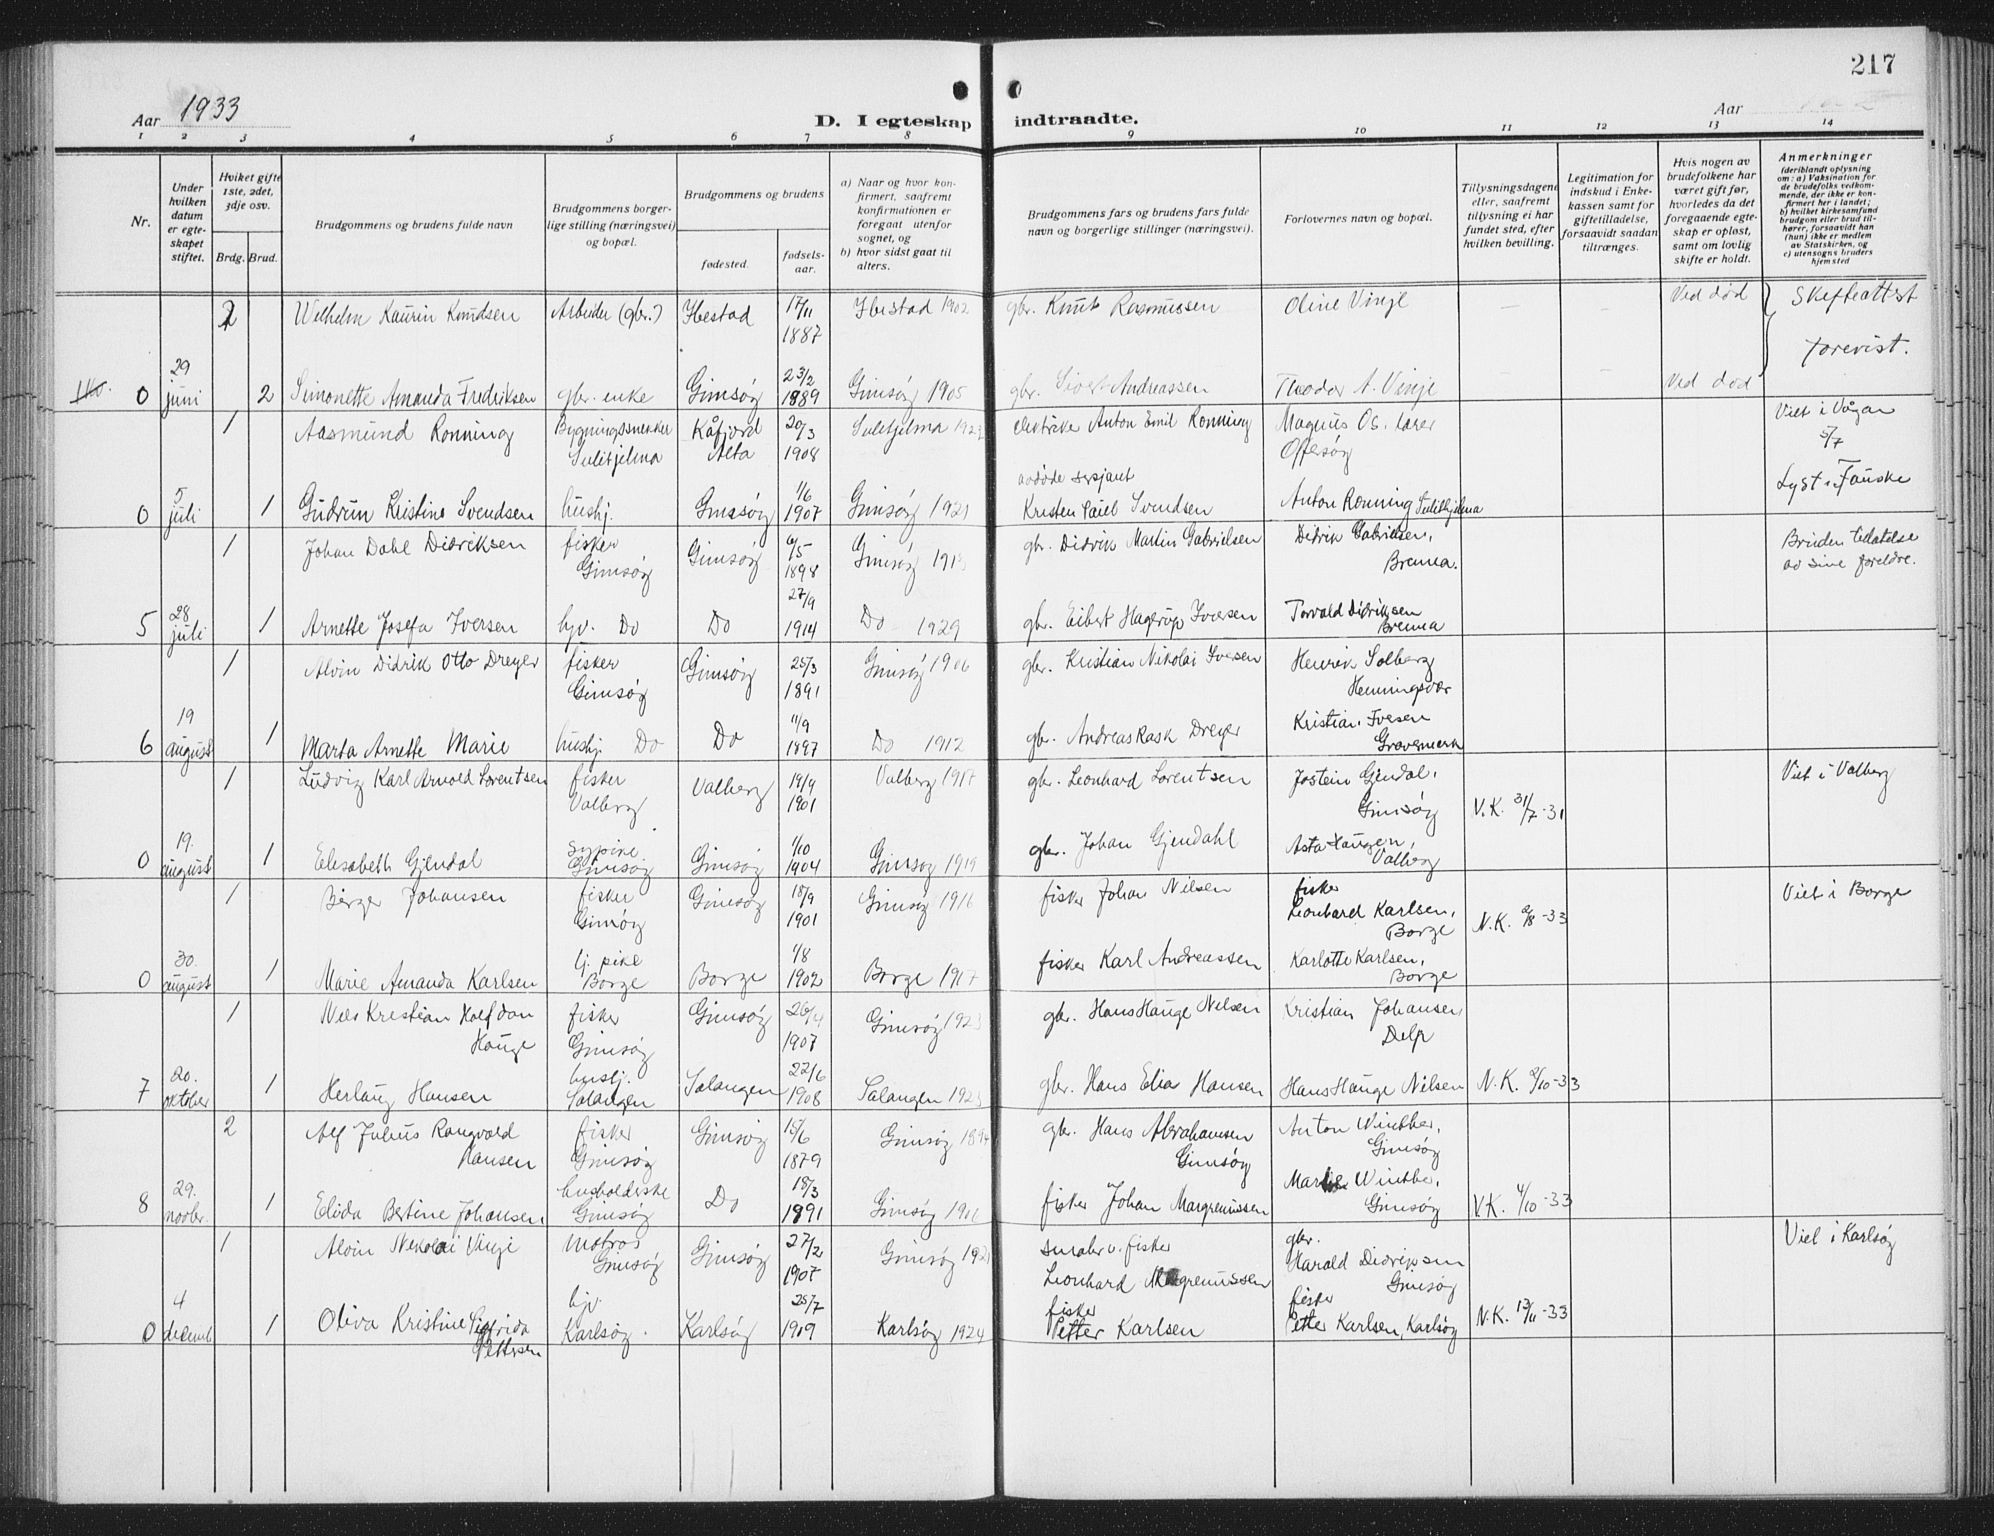 217
Aar 1933
D. I egteskap indtraadte.
Aar
1 2 3 4 5 6 7 8 9 10 11 12 13 14
Nr.
Under hvilken datum er egteskapet stiftet.
Hviket gifte 1ste, 2det, 3dje osv.
Brdg. Brud.
Brudgommens og brudens fulde navn
Brudgommens borgerlige stilling (næringsvei) og bopæl.
Brudgommens og brudens
fødested.
fødselsaar.
a) Naar og hvor konfirmert, saafremt konfirmationen er foregaat utenfor sognet, og
b) hvor sidst gaat til alters.
Brudgommens fars og brudens fars fulde navn og borgerlige stillinger (næringsvei).
Forlovernes navn og bopæl.
Tillysningsdagene eller, saafremt tillysning ei har fundet sted, efter hvilken bevilling.
Legitimation for indskud i Enkekassen samt for giftetilladelse, forsaavidt saadan tiltrænges.
Hvis nogen av brudefolkene har været gift før, hvorledes da det foregaaende egteskap er opløst, samt om lovlig skifte er holdt.
Anmerkninger (deriblandt oplysning om: a) Vaksination for de brudefolks vedkommende, der ikke er konfirmert her i landet; b) hvilket kirkesamfund brudgom eller brud tilhører, forsaavidt han (hun) ikke er medlem av Statskirken, og c) utensogns bruders hjemsted
2 Wilhelm Kaurin Knudsen Arbeider (gbr.) Ibestad 17/11 1887 Ibestad 1902 gbr. Knut Rasmussen Oline Vinje – – Ved død Skifteattest forevist.
0 29 juni 2 Simonette Amanda Fredriksen gbr. enke Gimsøy 23/2 1889 Gimsøy 1905 gbr. Sivert Andreassen Theodor A. Vinje Ved død
1 Aasmund Rønning Bygningssnekker Sulitjelma Kåfjord Alta 20/3 1908 Sulitjelma elektriker Anton Emil Rønning Magnus Os. lærer Offersøy Viet i Vågan 5/7
0 5 juli 1 Gudrun Kristine Svendsen hushj. Gimsøy 1/6 1907 Gimsøy 1921 avdøde sersjant Kristen Svendsen Anton Rønning Sulitjelma Lyst i Fauske
1 Johan Dahl Didriksen fisker Gimsøy Gimsøy 6/5 1898 Gimsøy gbr. Didrik Martin Gabrielsen Didrik Gabrielsen, Brenna. Bruden tillatelse av sine foreldre.
5 28 juli 1 Arnette Josefa Iversen hjv. Do Do 27/9 1914 Do 1929 gbr. Eibert Hagerup Iversen Torvald Didriksen Brenna
1 Alvin Didrik Otto Dreyer fisker Gimsøy Gimsøy 25/3 1891 Gimsøy 1906 gbr. Kristian Nikolai Iversen Henrik Solberg Henningsvær
6 19 august 1 Marta Arnette Marie hushj. Do Do 11/9 1897 Do 1912 gbr. Andreas Rask Dreyer Kristian Iversen
1 Ludvig Karl Arnold Lorentsen fisker Valberg Valberg 19/9 1901 Valberg 1917 gbr. Leonhard Lorentsen Jostein Gjendal, Gimsøy V.K. 31/7-31 Viet i Valberg
0 19. august 1 Elisabeth Gjendal sypike Gimsøy Gimsøy 1/10 1904 Gimsøy 1919 gbr. Johan Gjendahl Asta Haugen, Valberg
1 Birger Johansen fisker Gimsøy Gimsøy 18/9 1901 Gimsøy 1916 fisker Johan Nilsen fisker Leonhard Karlsen, Borge N.K. 2/8-33 Viet i Borge
0 30. august 1 Marie Amanda Karlsen tj. pike Borge Borge 1/8 1902 Borge 1917 fisker Karl Andreassen Karlotte Karlsen, Borge
1 Nils Kristian Halfdan Hauge fisker Gimsøy Gimsøy 26/4 1907 Gimsøy gbr. Hans Hauge Nilsen Kristian Johansen, Delp
7 20. oktober 1 Herlaug Hansen hushj. Salangen Salangen 22/6 1908 Salangen 1923 gbr. Hans Elia Hansen Hans Hauge Nilsen N.K. 2/10-33
2 Alf Julius Rangvald Hansen fisker Gimsøy Gimsøy 15/6 1879 Gimsøy 1894 gbr. Hans Abrahamsen Gimsøy Anton Winther, Gimsøy
8 29. novbr. 1 Elida Bertine Johansen, husholderske Gimsøy Do 18/3 1891 Gimsøy 1906 fisker Johan Margremussen Marie Winther, Gimsøy V.K. 4/10-33
1 Alvin Nikolai Vinje matros Gimsøy Gimsøy 27/2 1907 Gimsøy smabr. v. fisker Leonhard Margremussen gbr. Harald Didriksen Gimsøy Viet i Karlsøy
0 4 decemb 1 Oliva Kristine Sigfrida Pettersen hjv. Karlsøy. Karlsøy 25/7 1909 Karlsøy 1924 fisker Petter Karlsen fisker Petter Karlsen, Karlsøy N.K. 13/11-33